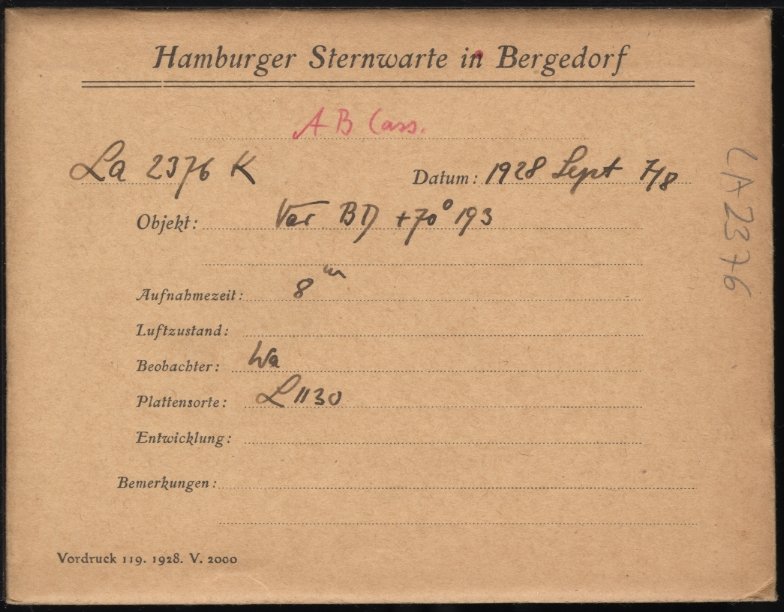 Hamburger Sternwarte in Bergedorf
AB Cass.
La 2376 K Datum: 1928 Sept 7/8
Objekt: Var BD +70° 193
Aufnahmezeit: 8ᵐ
Luftzustand:
Beobachter: Wa
Plattensorte: L 1130
Entwicklung:
Bemerkungen:
Vordruck 119. 1928. V. 2000
LA 2376